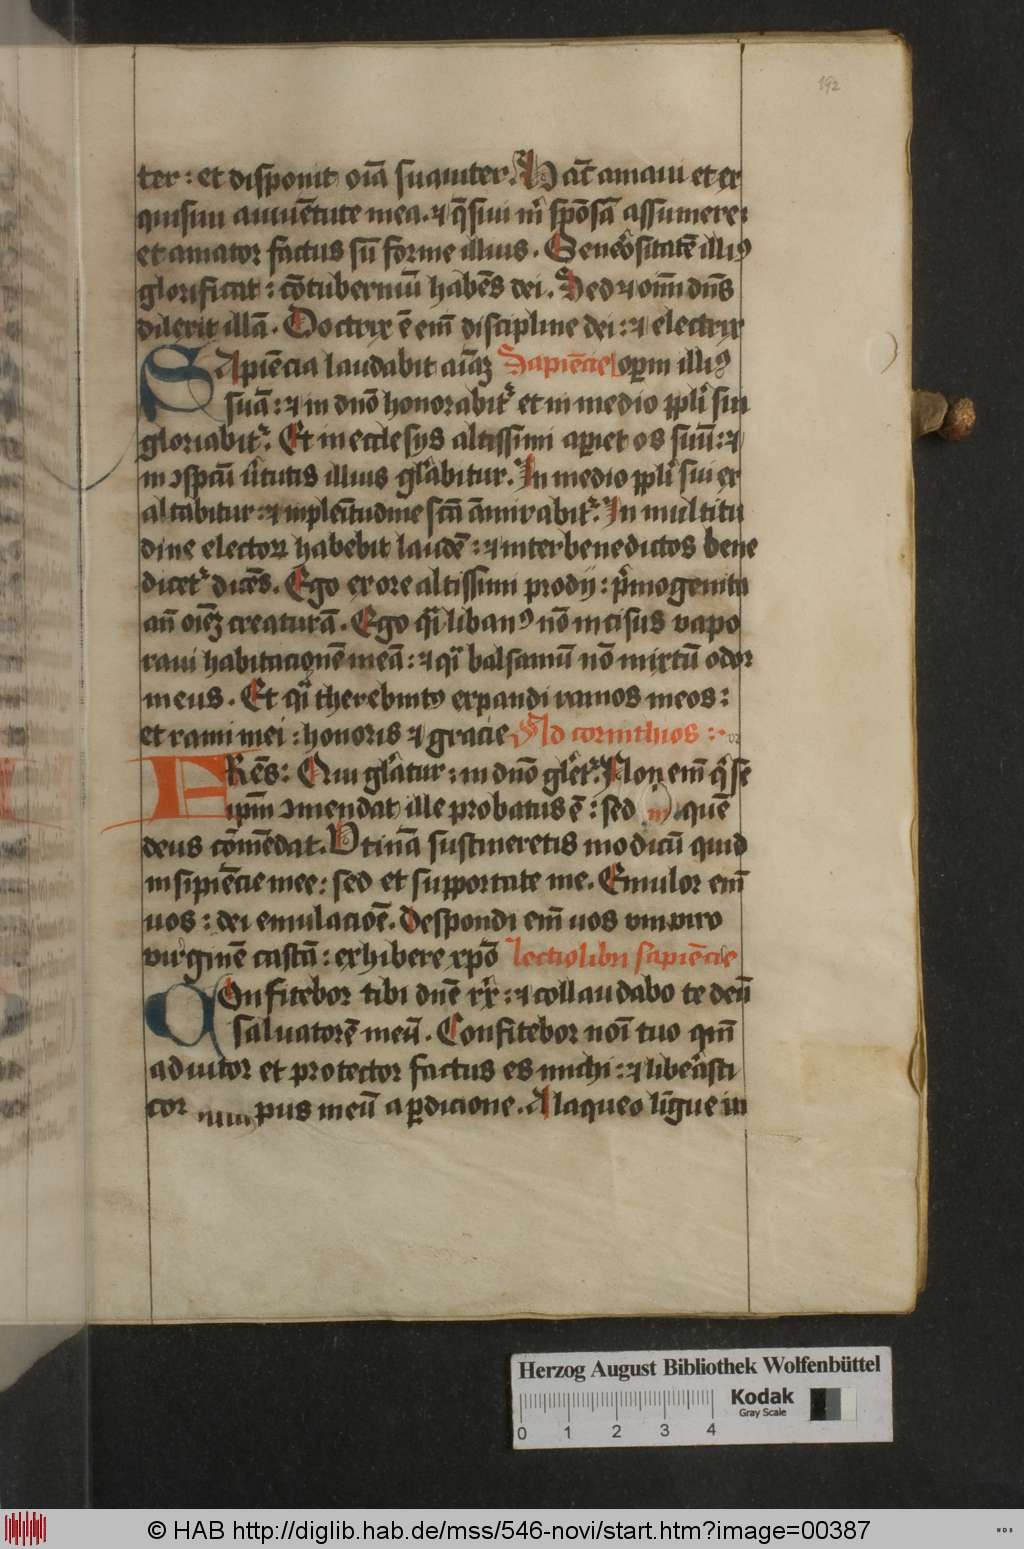 192
ter : et disponit oīa suauiter. Hāc amaui et ex
quisiui a iuuētute mea. ⁊ q̄siui m̄ spōsā assumere :
et amator factus sū forme illius. Gen̄ositatē illiꝰ
glorificat : cōtuberniū habēs dei. Sed ⁊ oīm dn̄s
dilexit illā. Doctrix ē em̄ discipline dei : ⁊ electrix
Sapiēcia laudabit aīaꝫ Sapiēcie oꝑm illiꝰ
suā : ⁊ in dn̄o honorabit᷑ et in medio ppl̄i sui
gloriabit᷑. Et in ecclesijs altissimi aꝑiet os suū : ⁊
in ↄspcū ūtutis illius gl̄abitur. In medio ppl̄i sui ex
altabitur : ⁊ in plēitudine scā āmirabit᷑. In multitu
dine electoꝝ habebit laudē : ⁊ inter benedictos bene
dicet᷑ dicēs. Ego ex ore altissimi prodij : p̄mogenita
an̄ oīeꝫ creaturā. Ego q̄i libanꝰ nō incisus vapo
raui habitacionē meā : ⁊ q̄i balsamū nō mixtū odor
meus. Et q̄i therebintꝰ expandi ramos meos :
et rami mei : honoris ⁊ gracie Ad corinthios :
FRēs : Qui gl̄atur : in dn̄o gl̄et᷑. Non em̄ q̄ se
ip̄m ↄmendat ille probatus ē : sed quē
deus cōmēdat. Vtinā sustineretis modicū quid
insipiēcie mee : sed et supportate me. Emulor em̄
uos : dei emulacioē. Despondi em̄ uos vni viro
virginē castā : exhibere xpō lectio libri sapiēcie
COnfitebor tibi dn̄e rx̄ : ⁊ collaudabo te deū
saluatorē meū. Confitebor noī tuo qm̄
adiutor et protector factus es michi : ⁊ lib̄asti
cor pus meū a ꝑdicione. A laqueo līgue in
Herzog August Bibliothek Wolfenbüttel
Kodak
Gray Scale
0 1 2 3 4
© HAB http://diglib.hab.de/mss/546-novi/start.htm?image=00387